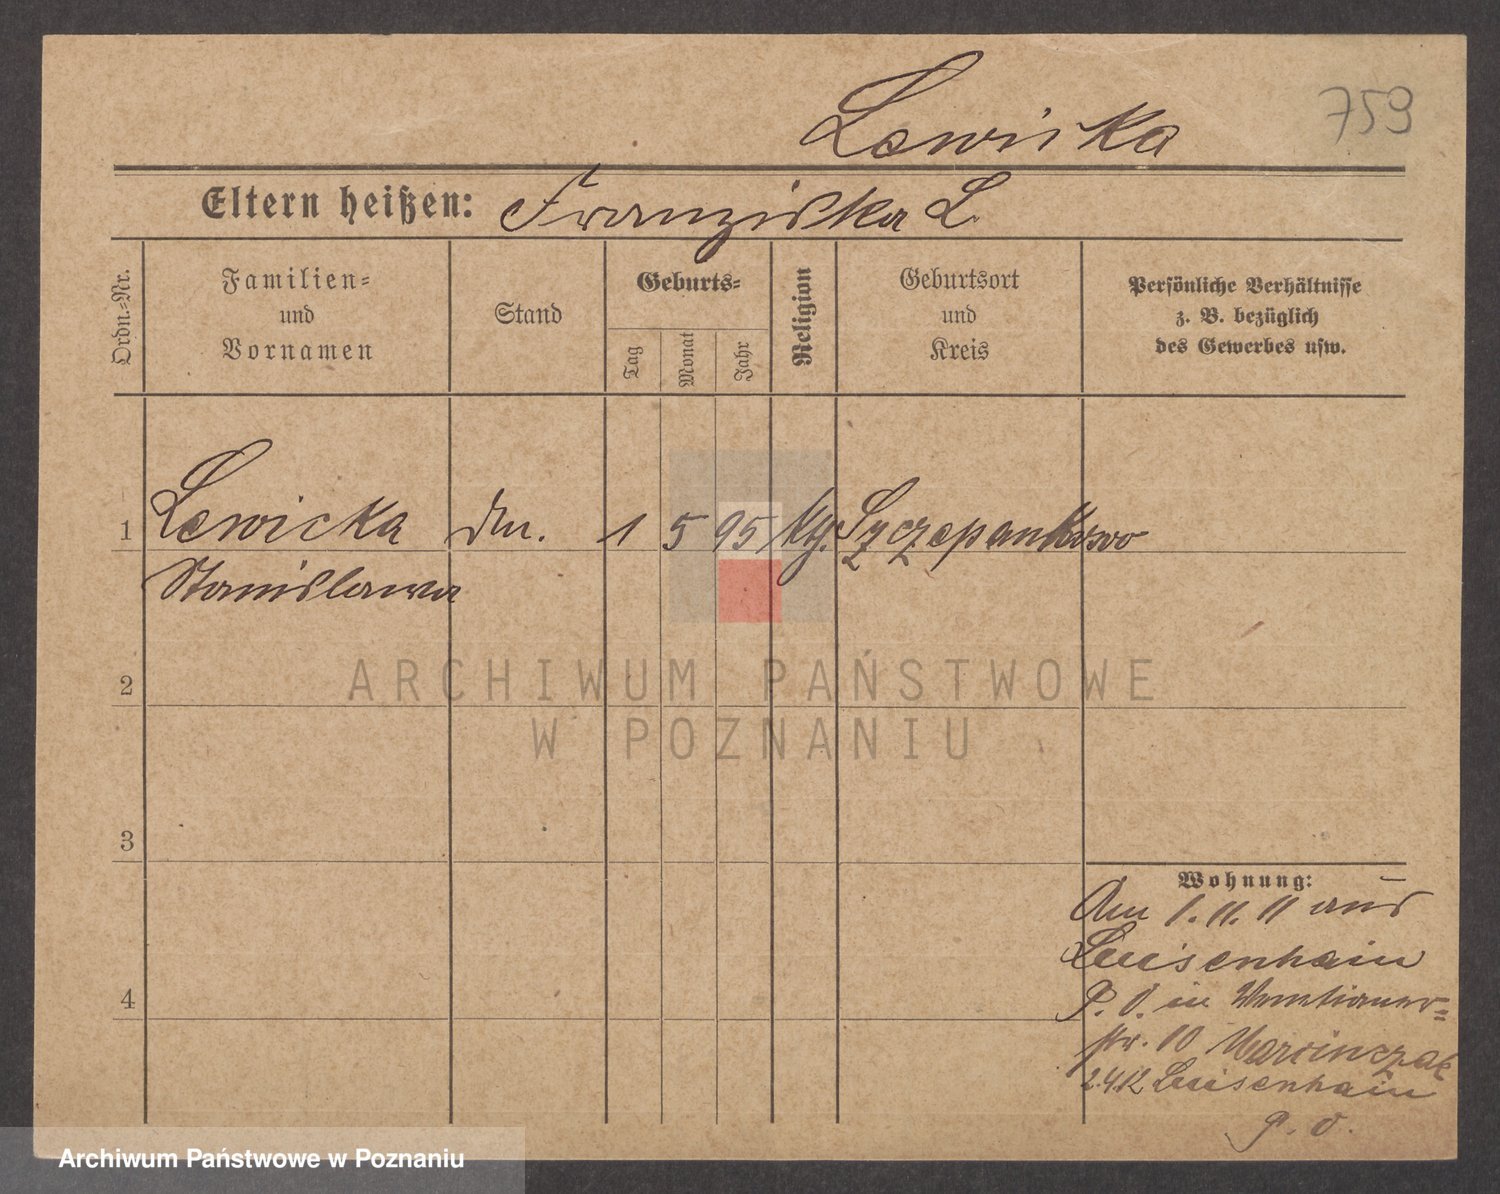 Lewicka
759
Eltern heißen: Franziska L.
Ordn.-Nr.
Familien-
und
Vornamen
Stand
Geburts-
Tag
Monat
Jahr
Religion
Geburtsort
und
Kreis
Persönliche Verhältnisse
z. B. bezüglich
des Gewerbes usw.
1 Lewicka 1 5 95 Szczepankowo
Stanislawa
2
ARCHIWUM PAŃSTWOWE
W POZNANIU
3
4
Wohnung:
Am 1. 11. 11 aus
Luisenhain
P. O. in
str. 10 Marcinczak
2.4.12 Luisenhain
P. O.
Archiwum Państwowe w Poznaniu